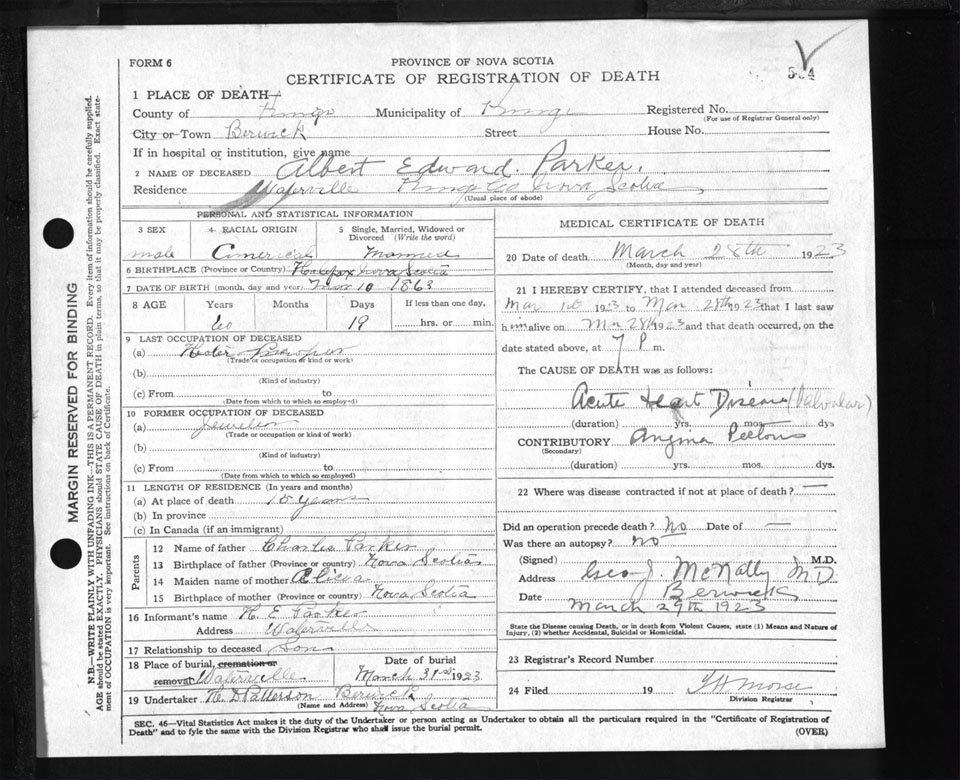 FORM 6
PROVINCE OF NOVA SCOTIA
CERTIFICATE OF REGISTRATION OF DEATH
534
1 PLACE OF DEATH—
County of Kings Municipality of Kings Registered No.
(For use of Registrar General only)
City or Town Berwick Street House No.
If in hospital or institution, give name
2 NAME OF DECEASED Albert Edward Parker.
Residence Waterville Kings Co Nova Scotia
(Usual place of abode)
PERSONAL AND STATISTICAL INFORMATION
3 SEX 4 RACIAL ORIGIN 5 Single, Married, Widowed or Divorced (Write the word)
male Married
6 BIRTHPLACE (Province or Country) Halifax Nova Scotia
7 DATE OF BIRTH (month, day and year) Mar 10 1863
8 AGE Years Months Days If less than one day,
60 19 hrs. or min.
9 LAST OCCUPATION OF DECEASED
(a) Hotel
(Trade or occupation or kind or work)
(b)
(Kind of industry)
(c) From to
(Date from which to which so employed)
10 FORMER OCCUPATION OF DECEASED
(a) Jeweler
(Trade or occupation or kind of work)
(b)
(Kind of industry)
(c) From to
(Date from which to which so employed)
11 LENGTH OF RESIDENCE (In years and months)
(a) At place of death years
(b) In province
(c) In Canada (if an immigrant)
Parents
12 Name of father Charles Parker
13 Birthplace of father (Province or country) Nova Scotia
14 Maiden name of mother
15 Birthplace of mother (Province or country) Nova Scotia
16 Informant's name H. E Parker
Address Waterville
17 Relationship to deceased Son
18 Place of burial, cremation or removal Waterville
Date of burial
March 31st 1923
19 Undertaker H. D Patterson Berwick
(Name and Address) Nova Scotia
MEDICAL CERTIFICATE OF DEATH
20 Date of death March 28th 1923
(Month, day and year)
21 I HEREBY CERTIFY, that I attended deceased from
Mar 1st 1923 to Mar 28th 1923 that I last saw
him alive on Mar 28th 1923 and that death occurred, on the
date stated above, at 7 P m.
The CAUSE OF DEATH was as follows:
Acute Heart Disease (Valvular)
(duration) yrs. mos. dys
CONTRIBUTORY Angina Pectoris
(Secondary)
(duration) yrs. mos. dys.
22 Where was disease contracted if not at place of death? —
Did an operation precede death? no Date of —
Was there an autopsy? no
(Signed) Geo. J. McNally M D M.D.
Address Berwick
Date March 29th 1923
State the Disease causing Death, or in death from Violent Causes, state (1) Means and Nature of
Injury, (2) whether Accidental, Suicidal or Homicidal.
23 Registrar's Record Number
24 Filed 19 Morse
Division Registrar
SEC. 46—Vital Statistics Act makes it the duty of the Undertaker or person acting as Undertaker to obtain all the particulars required in the "Certificate of Registration of
Death" and to fyle the same with the Division Registrar who shall issue the burial permit.
(OVER)
MARGIN RESERVED FOR BINDING
N.B.—WRITE PLAINLY WITH UNFADING INK—THIS IS A PERMANENT RECORD. Every item of information should be carefully supplied.
AGE should be stated EXACTLY. PHYSICIANS should STATE CAUSE OF DEATH in plain terms, so that it may be properly classified. Exact state-
ment of OCCUPATION is very important. See instructions on back of Certificate.